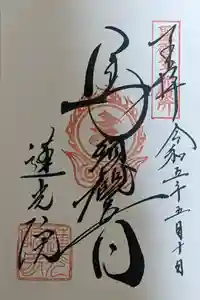 奉拝 令和五年五月十日
馬頭観音
蓮光院